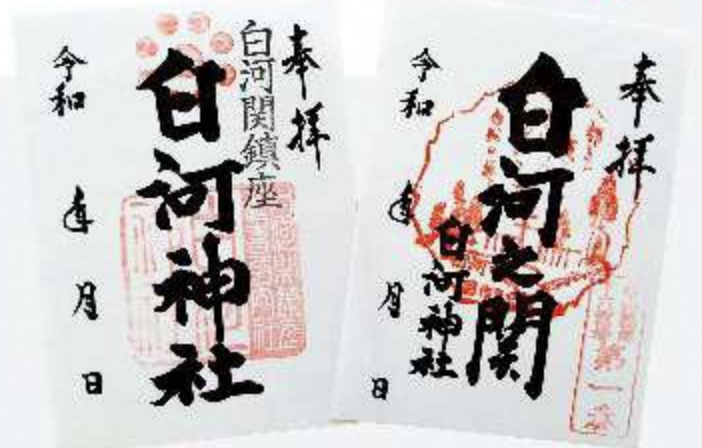 奉拝
白河関鎮座
白河神社
令和 年 月 日
奉拝
白河之関
白河神社
令和 年 月 日